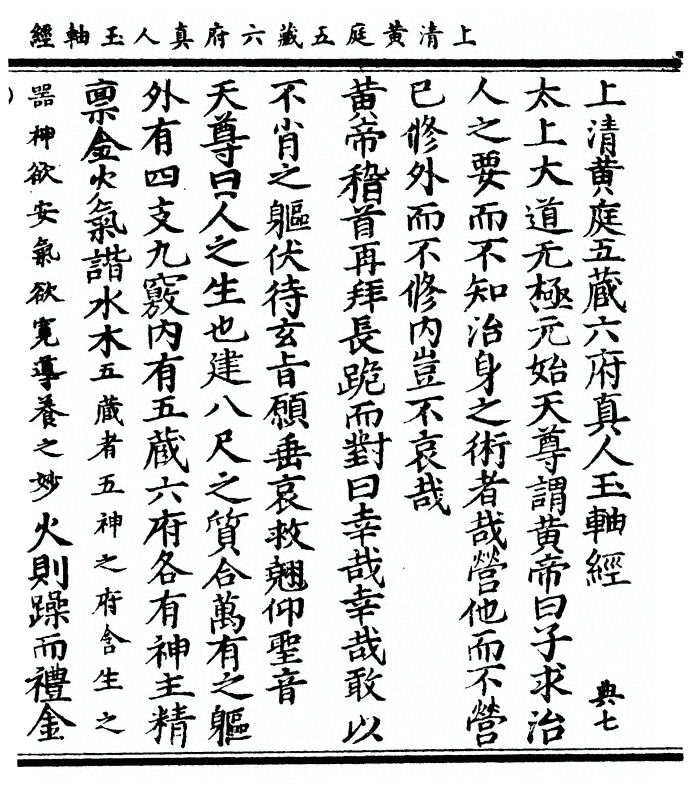 上清黃庭五藏六府真人玉軸經
上清黃庭五藏六府真人玉軸經 典七
太上大道无極元始天尊謂黃帝曰子求治
人之要而不知治身之術者哉營他而不營
已修外而不修內豈不哀哉
黃帝稽首再拜長跪而對曰幸哉幸哉敢以
不肖之軀伏待玄旨願垂哀救翹仰聖音
天尊曰人之生也建八尺之質合萬有之軀
外有四支九竅內有五藏六府各有神主精
禀金火氣諧水木五藏者五神之府含生之
器神欲安氣欲寛導養之妙火則躁而禮金